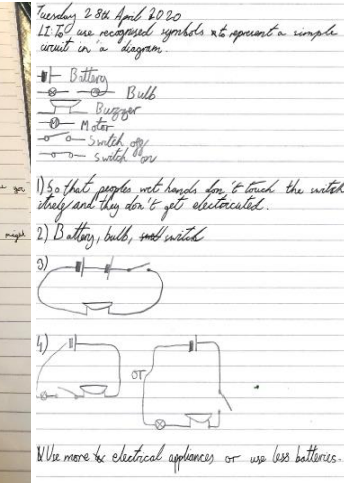 Tuesday 28th April 2020
LI: To use recognised symbols to represent a simple
circuit in a diagram.
Battery
Bulb
Buzzer
Motor
Switch off
Switch on
1) So that peoples wet hands don't touch the switch
itself and they don't get electrocuted.
2) Battery, bulb, switch
3)
4)
or
Use more electrical appliances or use less batteries.
might